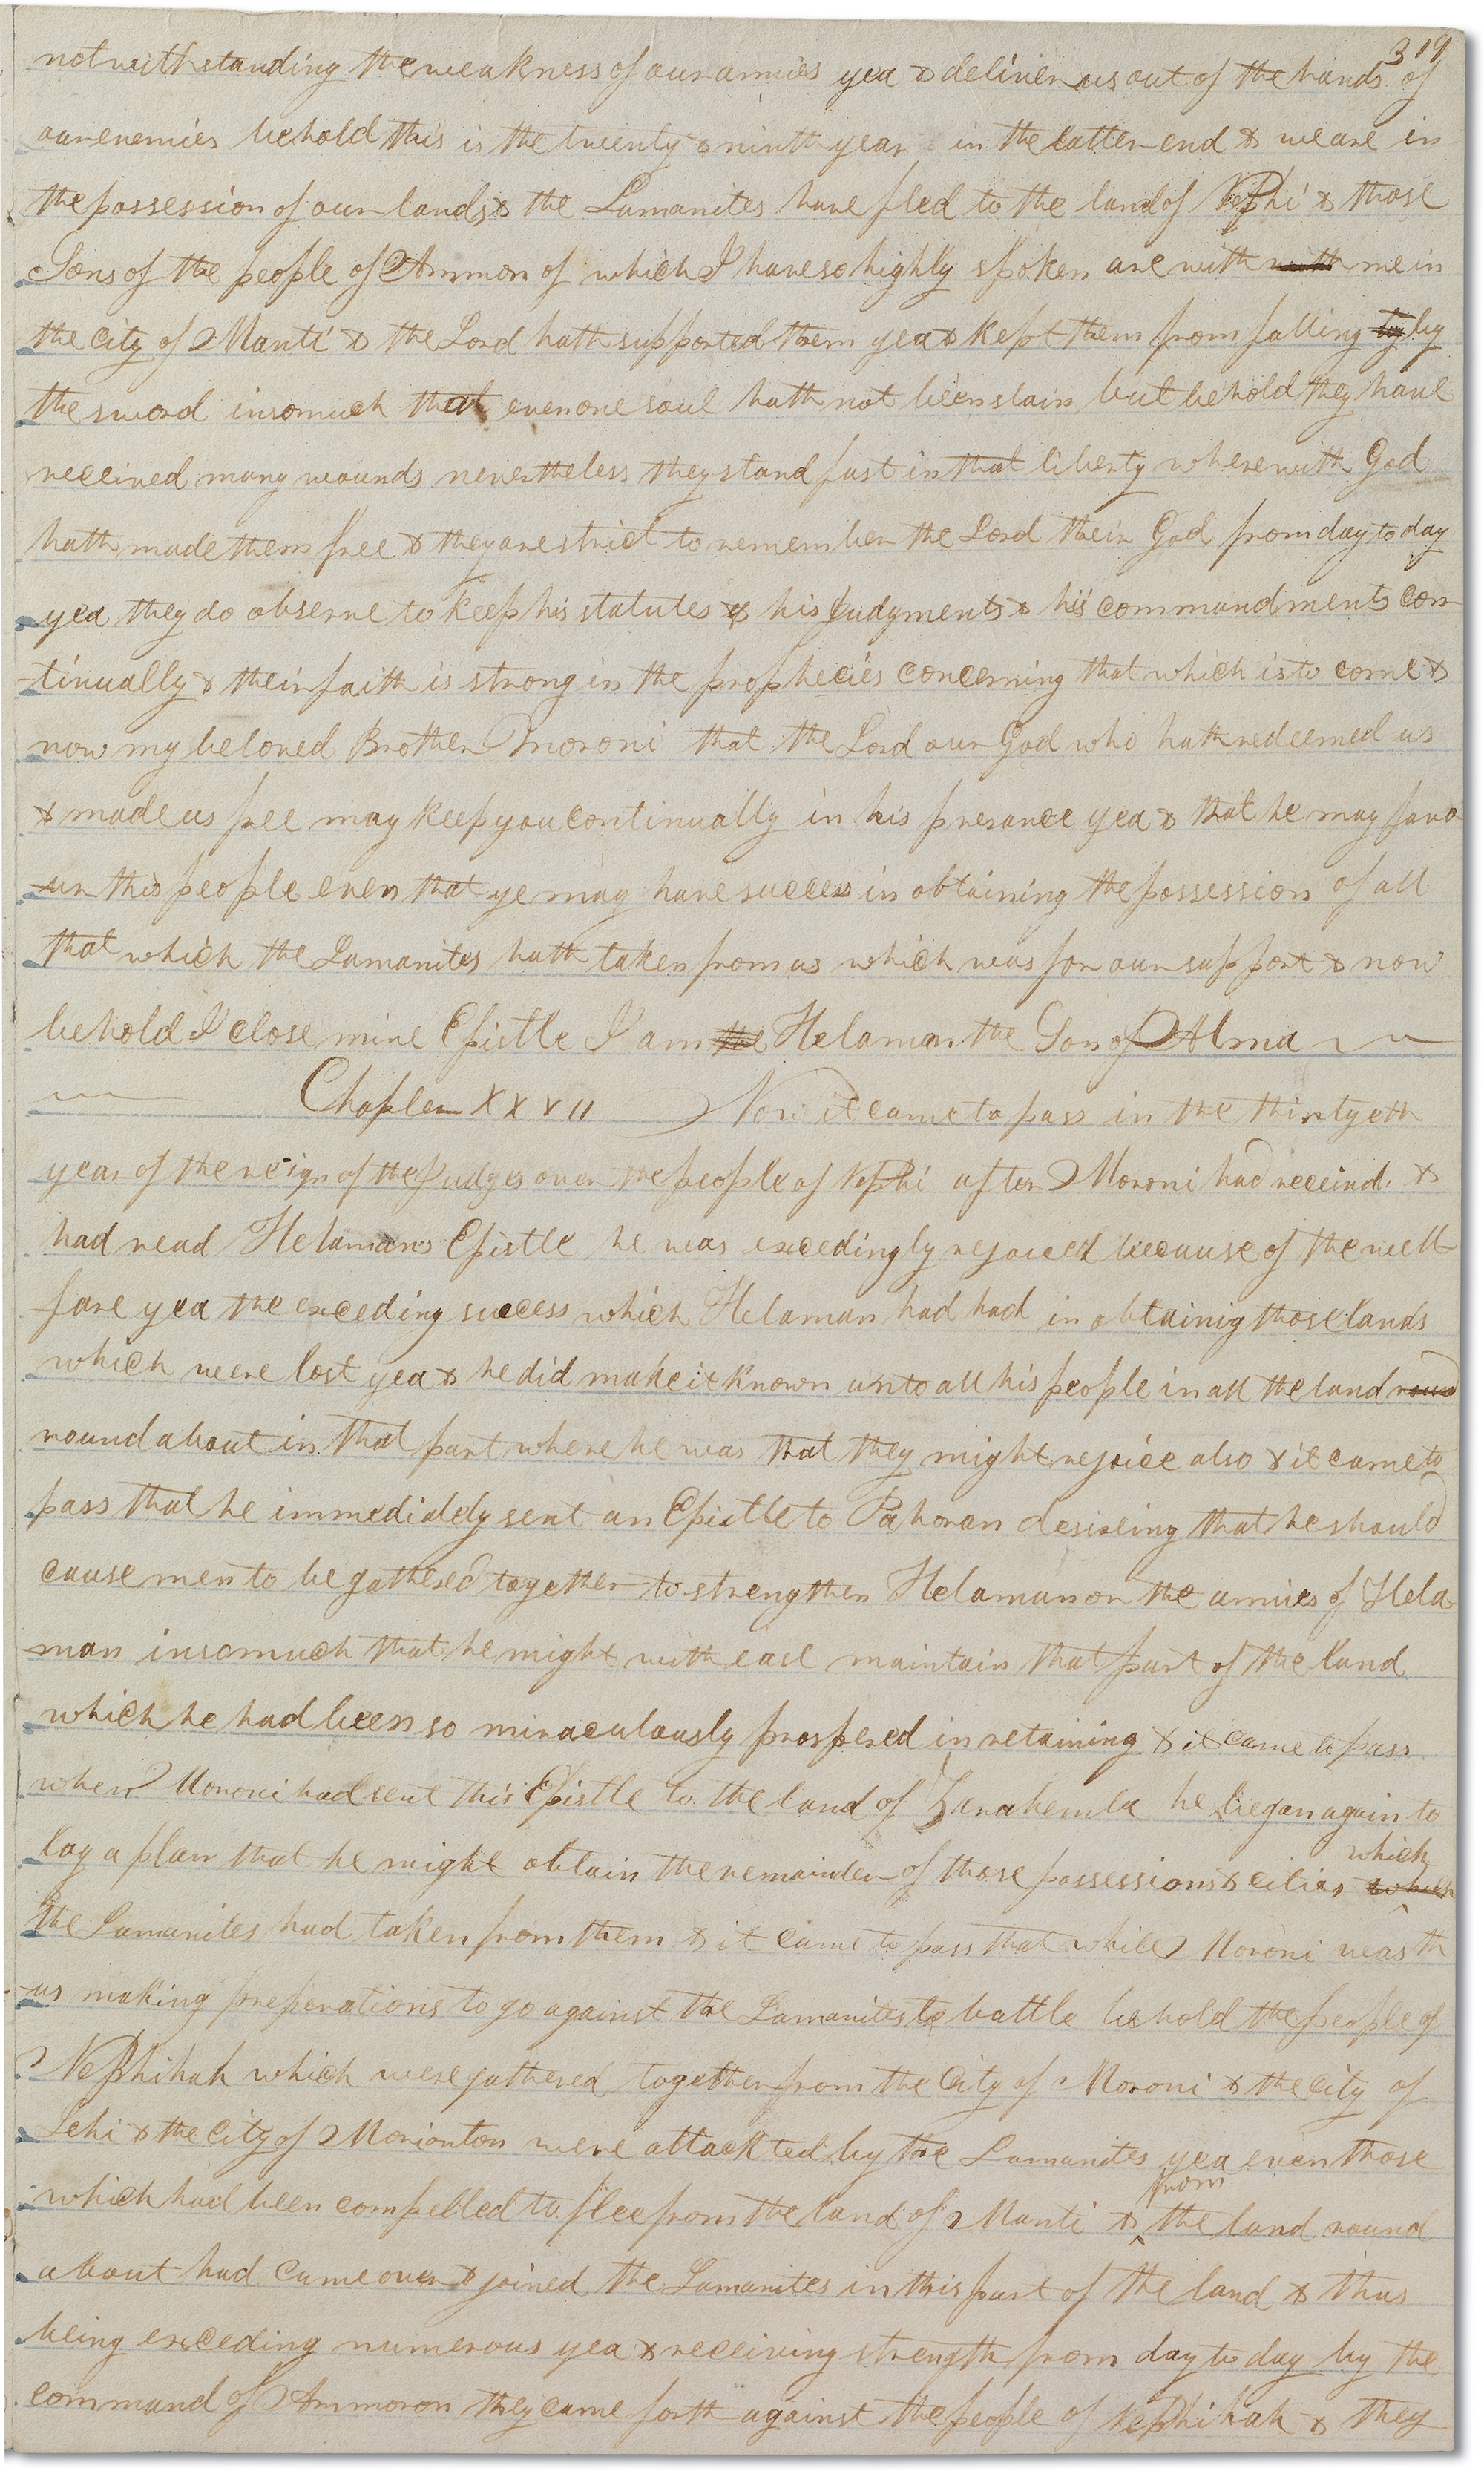 319
notwithstanding the weakness of our armies yea & deliver us out of the hands of
our enemies behold this is the twenty & ninth year in the latter end & we are in
the possession of our lands & the Lamanites have fled to the land of Nephi & those
Sons of the people of Ammon of which I have so highly spoken are with with me in
the city of Manti & the Lord hath supported them yea & kept them from falling by by
the sword insomuch that even one soul hath not been slain but behold they have
received many wounds nevertheless they stand fast in that liberty wherewith God
hath made them free & they are strict to remember the Lord their God from day to day
yea they do observe to keep his statutes & his Judgments & his commandments con-
-tinually & their faith is strong in the prophecies concerning that which is to come &
now my beloved Brother Moroni that the Lord our God who hath redeemed us
& made us free may keep you continually in his presance yea & that he may favo
-ur this people even that ye may have success in obtaining the possession of all
that which the Lamanites hath taken from us which was for our support & now
behold I close mine Epistle I am the Helaman the Son of Alma
Chapter XXVII Now it came to pass in the thirtyeth
year of the reign of the Judges over the people of Nephi after Moroni had receivd. &
had read Helamans Epistle he was excedingly rejoiced because of the well-
fare yea the exceding success which Helaman had had in obtainig those lands
which were lost yea & he did make it known unto all his people in all the land round
round about in that part where he was that they might rejoice also & it came to
pass that he immediately sent an Epistle to Pahoran desireing that he should
cause men to be gathered together to strengthen Helaman or the armies of Hela
-man insomuch that he might with ease maintain that part of the land
which he had been so miraculously prospered in retaining & it came to pass
when Moroni had sent this Epistle to the land of Zarahemla he began again to
lay a plan that he might obtain the remainder of those possessions & cities which
which
the Lamanites had taken from them & it came to pass that while Moroni was th
-us making preperations to go against the Lamanites to battle behold the people of
Nephihah which were gathered together from the City of Moroni & the city of
Lehi & the City of Morionton were attackted by the Lamanites yea even those
which had been compelled to flee from the land of Manti & from the land round
about had came over & joined the Lamanites in this part of the land & thus
being exceding numerous yea & receiving strength from day to day by the
command of Ammoron they came forth against the people of Nephihah & they